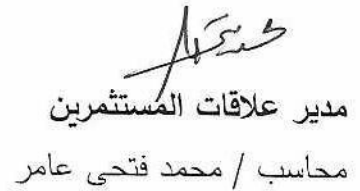 مدير علاقات المستثمرين
محاسب / محمد فتحى عامر